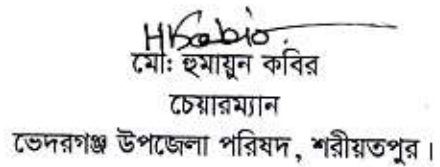 মোঃ হুমায়ুন কবির
চেয়ারম্যান
ভেদরগঞ্জ উপজেলা পরিষদ, শরীয়তপুর।